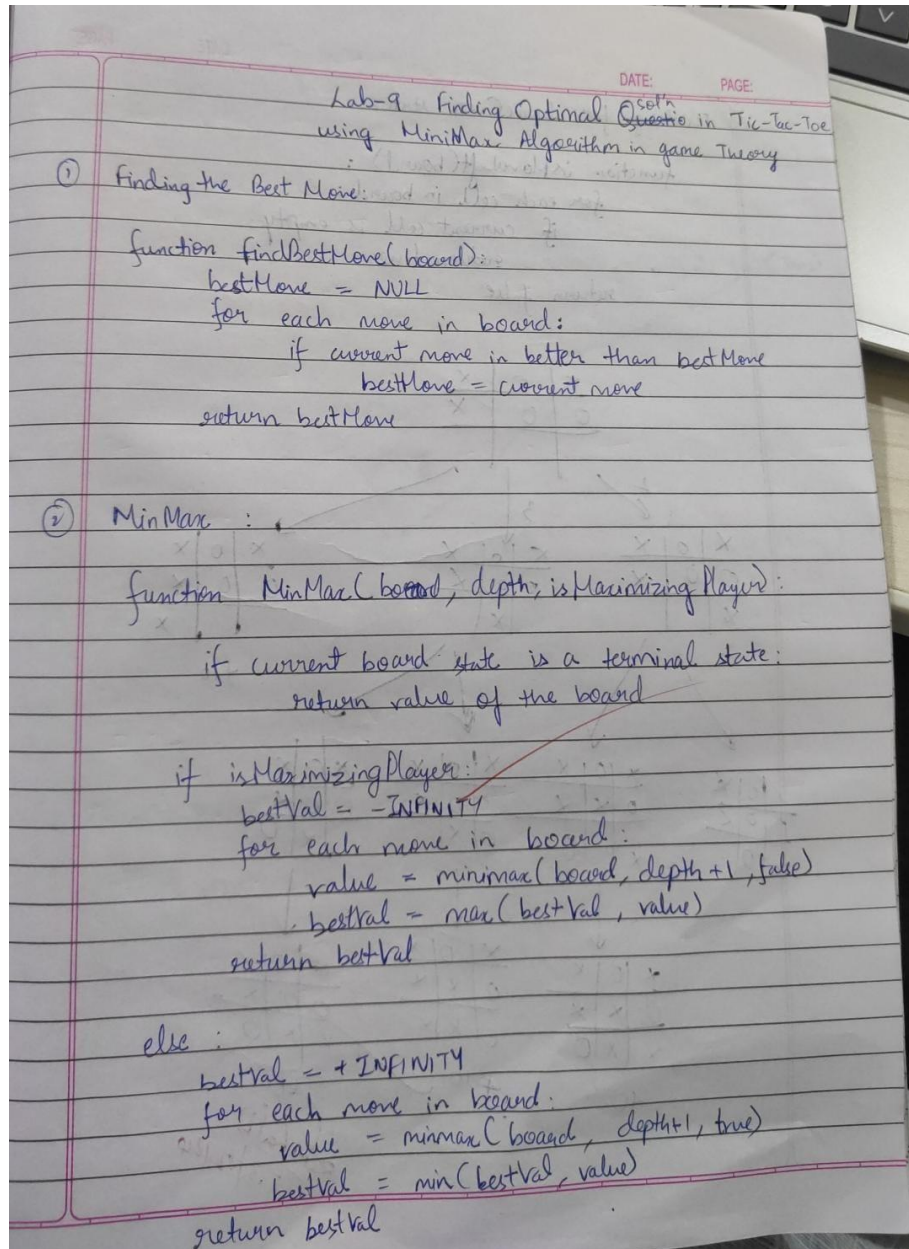 DATE: PAGE:
Lab-9 Finding Optimal Questio sol'n in Tic-Tac-Toe
using MiniMax Algorithm in game Theory
① Finding the Best Move:
function findBestMove(board):
bestMove = NULL
for each move in board:
if current move in better than bestMove
bestMove = current move
return bestMove
② MinMax :
function MinMax(board, depth, isMaximizingPlayer):
if current board state is a terminal state:
return value of the board
if isMaximizingPlayer:
bestVal = -INFINITY
for each move in board:
value = minimax(board, depth+1, false)
bestVal = max(bestVal, value)
return bestVal
else :
bestVal = + INFINITY
for each move in board:
value = minmax(board, depth+1, true)
bestVal = min(bestVal, value)
return bestVal